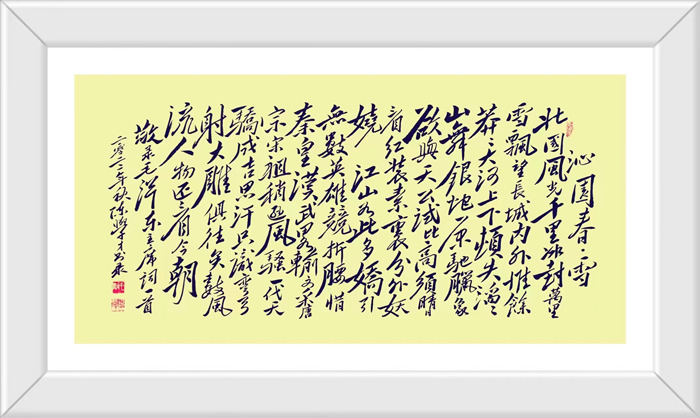 沁園春·雪
北國風光千里冰封萬里
雪飄望長城内外惟餘
莽〻大河上下頓失滔〻
山舞銀蛇原馳臘象
欲與天公試比高須晴日
看紅装素裹分外妖
嬈 江山如此多嬌引
無數英雄競折腰惜
秦皇漢武略輸文采唐
宗宋祖稍遜風騷一代天
驕成吉思汗只識彎弓
射大雕俱往矣數風
流人物還看今朝
敬录毛泽东主席词一首
年秋陈